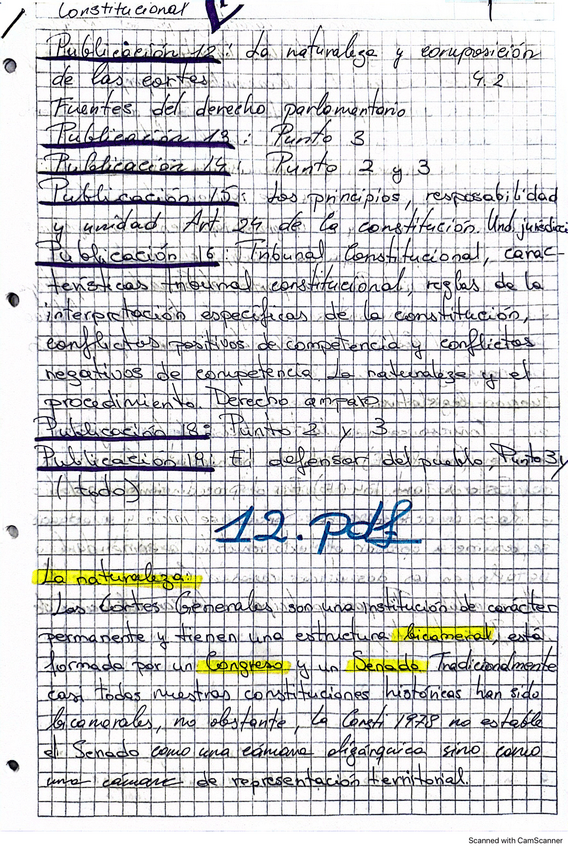 Constitucional
Publicación 12: La naturaleza y composición
de las cortes 4.2
Fuentes del derecho parlamentario
Publicación 13: Punto 3
Publicación 14: Punto 2 y 3
Publicación 15: Los principios, resposabilidad
y unidad. Art 24 de la constitución. Und. jurisdicci
Publicación 16: Tribunal Constitucional, carac-
terísticas tribunal constitucional, reglas de la
interpretación específicas de la constitución,
conflictos positivos de competencia y conflictos
negativos de competencia. La naturaleza y el
procedimiento. Derecho amparo
Publicación 18: Punto 2 y 3
Publicación 19: El defensor del pueblo, Punto 3 y
(todo)
12.pdf
La naturaleza:
Las Cortes Generales son una institución de carácter
permanente y tienen una estructura bicameral, está
formada por un Congreso y un Senado. Tradicionalmente
casi todas nuestras constituciones históricas han sido
bicamerales, no obstante, la Consti 1978 no estable
el Senado como una cámara oligárquica sino como
una cámara de representación territorial.
Scanned with CamScanner